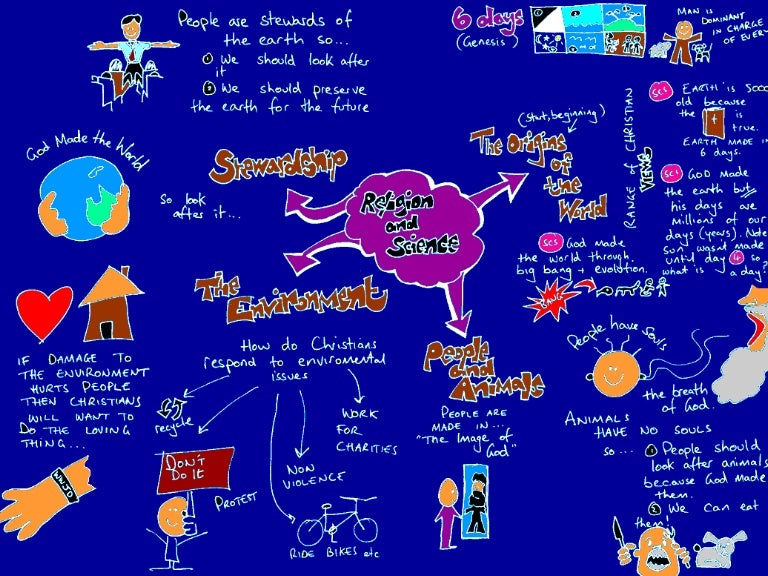 People are stewards of
the earth so...
① We should look after
it
② We should preserve
the earth for the future
6 days
(Genesis)
MAN IS
DOMINANT
IN CHARGE
OF EVERY
God Made the World
So look
after it...
Stewardship
Religion
and
Science
(start, beginning)
The Origins
of
the
World
RANGE OF CHRISTIAN
VIEWS
SC1 EARTH IS 5000
old because
the is
true.
EARTH MADE IN
6 days.
SC1 GOD made
the earth but
his days are
millions of our
days (years). Note
sun wasnt made
until day 4 so?
what is a day?
SCS God made
the world through
big bang + evolution.
BANG
The
Environment
How do Christians
respond to enviromental
issues
recycle
DON'T
DO IT
PROTEST
NON
VIOLENCE
RIDE BIKES etc
WORK
FOR
CHARITIES
IF DAMAGE TO
THE ENVIRONMENT
HURTS PEOPLE
THEN CHRISTIANS
WILL WANT TO
DO THE LOVING
THING...
WWJD
People
and
Animals
PEOPLE ARE
MADE IN...
"The Image of
God"
People have souls
the breath
of God.
ANIMALS
HAVE NO SOULS
so... ① People should
look after animals
because God made
them.
② We can eat
them!